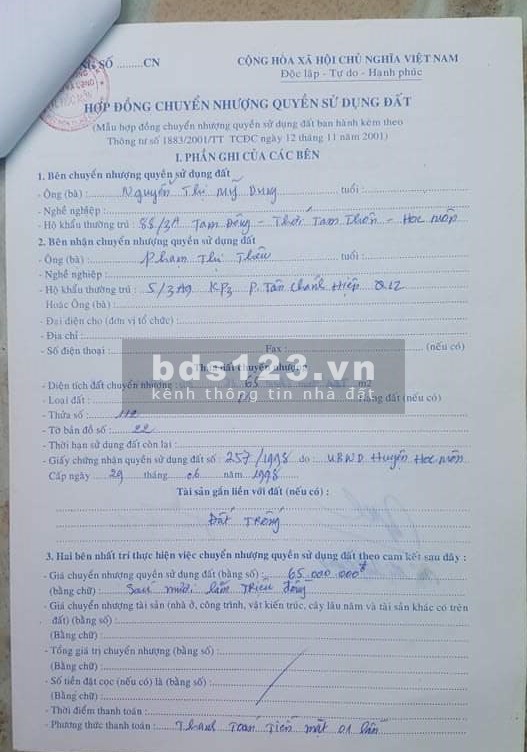 SỐ .........CN
CỘNG HÒA XÃ HỘI CHỦ NGHĨA VIỆT NAM
Độc lập - Tự do - Hạnh phúc
HỢP ĐỒNG CHUYỂN NHƯỢNG QUYỀN SỬ DỤNG ĐẤT
(Mẫu hợp đồng chuyển nhượng quyền sử dụng đất ban hành kèm theo
Thông tư số 1883/2001/TT TCĐC ngày 12 tháng 11 năm 2001)
I. PHẦN GHI CỦA CÁC BÊN
1. Bên chuyển nhượng quyền sử dụng đất
- Ông (bà) : Nguyễn Thị Mỹ Dung tuổi :
- Nghề nghiệp :
- Hộ khẩu thường trú : 88/3A Tam Đông - Thới Tam Thôn - Hóc Môn
2. Bên nhận chuyển nhượng quyền sử dụng đất
- Ông (bà) : Phạm Thị tuổi :
- Nghề nghiệp :
- Hộ khẩu thường trú : 5/3A9 KP3 P. Tân Chánh Hiệp Q12
Hoặc Ông (bà) :
- Đại diện cho (đơn vị tổ chức) :
- Địa chỉ :
- Số điện thoại : Fax : (nếu có)
bds123.vn
kênh thông tin nhà đất
Thửa đất chuyển nhượng
- Diện tích đất chuyển nhượng : 65 m2
- Loại đất : Hạng đất (nếu có)
- Thửa số : 112
- Tờ bản đồ số : 22
- Thời hạn sử dụng đất còn lại :
- Giấy chứng nhận quyền sử dụng đất số : 257/1998 do : UBND Huyện Hóc Môn
Cấp ngày 29 tháng 06 năm 1998
Tài sản gắn liền với đất (nếu có) :
Đất Trống
3. Hai bên nhất trí thực hiện việc chuyển nhượng quyền sử dụng đất theo cam kết sau đây :
- Giá chuyển nhượng quyền sử dụng đất (bằng số) : 65 000 000đ
(bằng chữ) : Sáu mươi lăm Triệu đồng
- Giá chuyển nhượng tài sản (nhà ở, công trình, vật kiến trúc, cây lâu năm và tài sản khác có trên
đất) (bằng số) :
(Bằng chữ) :
- Tổng giá trị chuyển nhượng (bằng số) :
(Bằng chữ) :
- Số tiền đặt cọc (nếu có) là (bằng số) :
(Bằng chữ) :
- Thời điểm thanh toán :
- Phương thức thanh toán : Thanh Toán Tiền mặt 01 lần